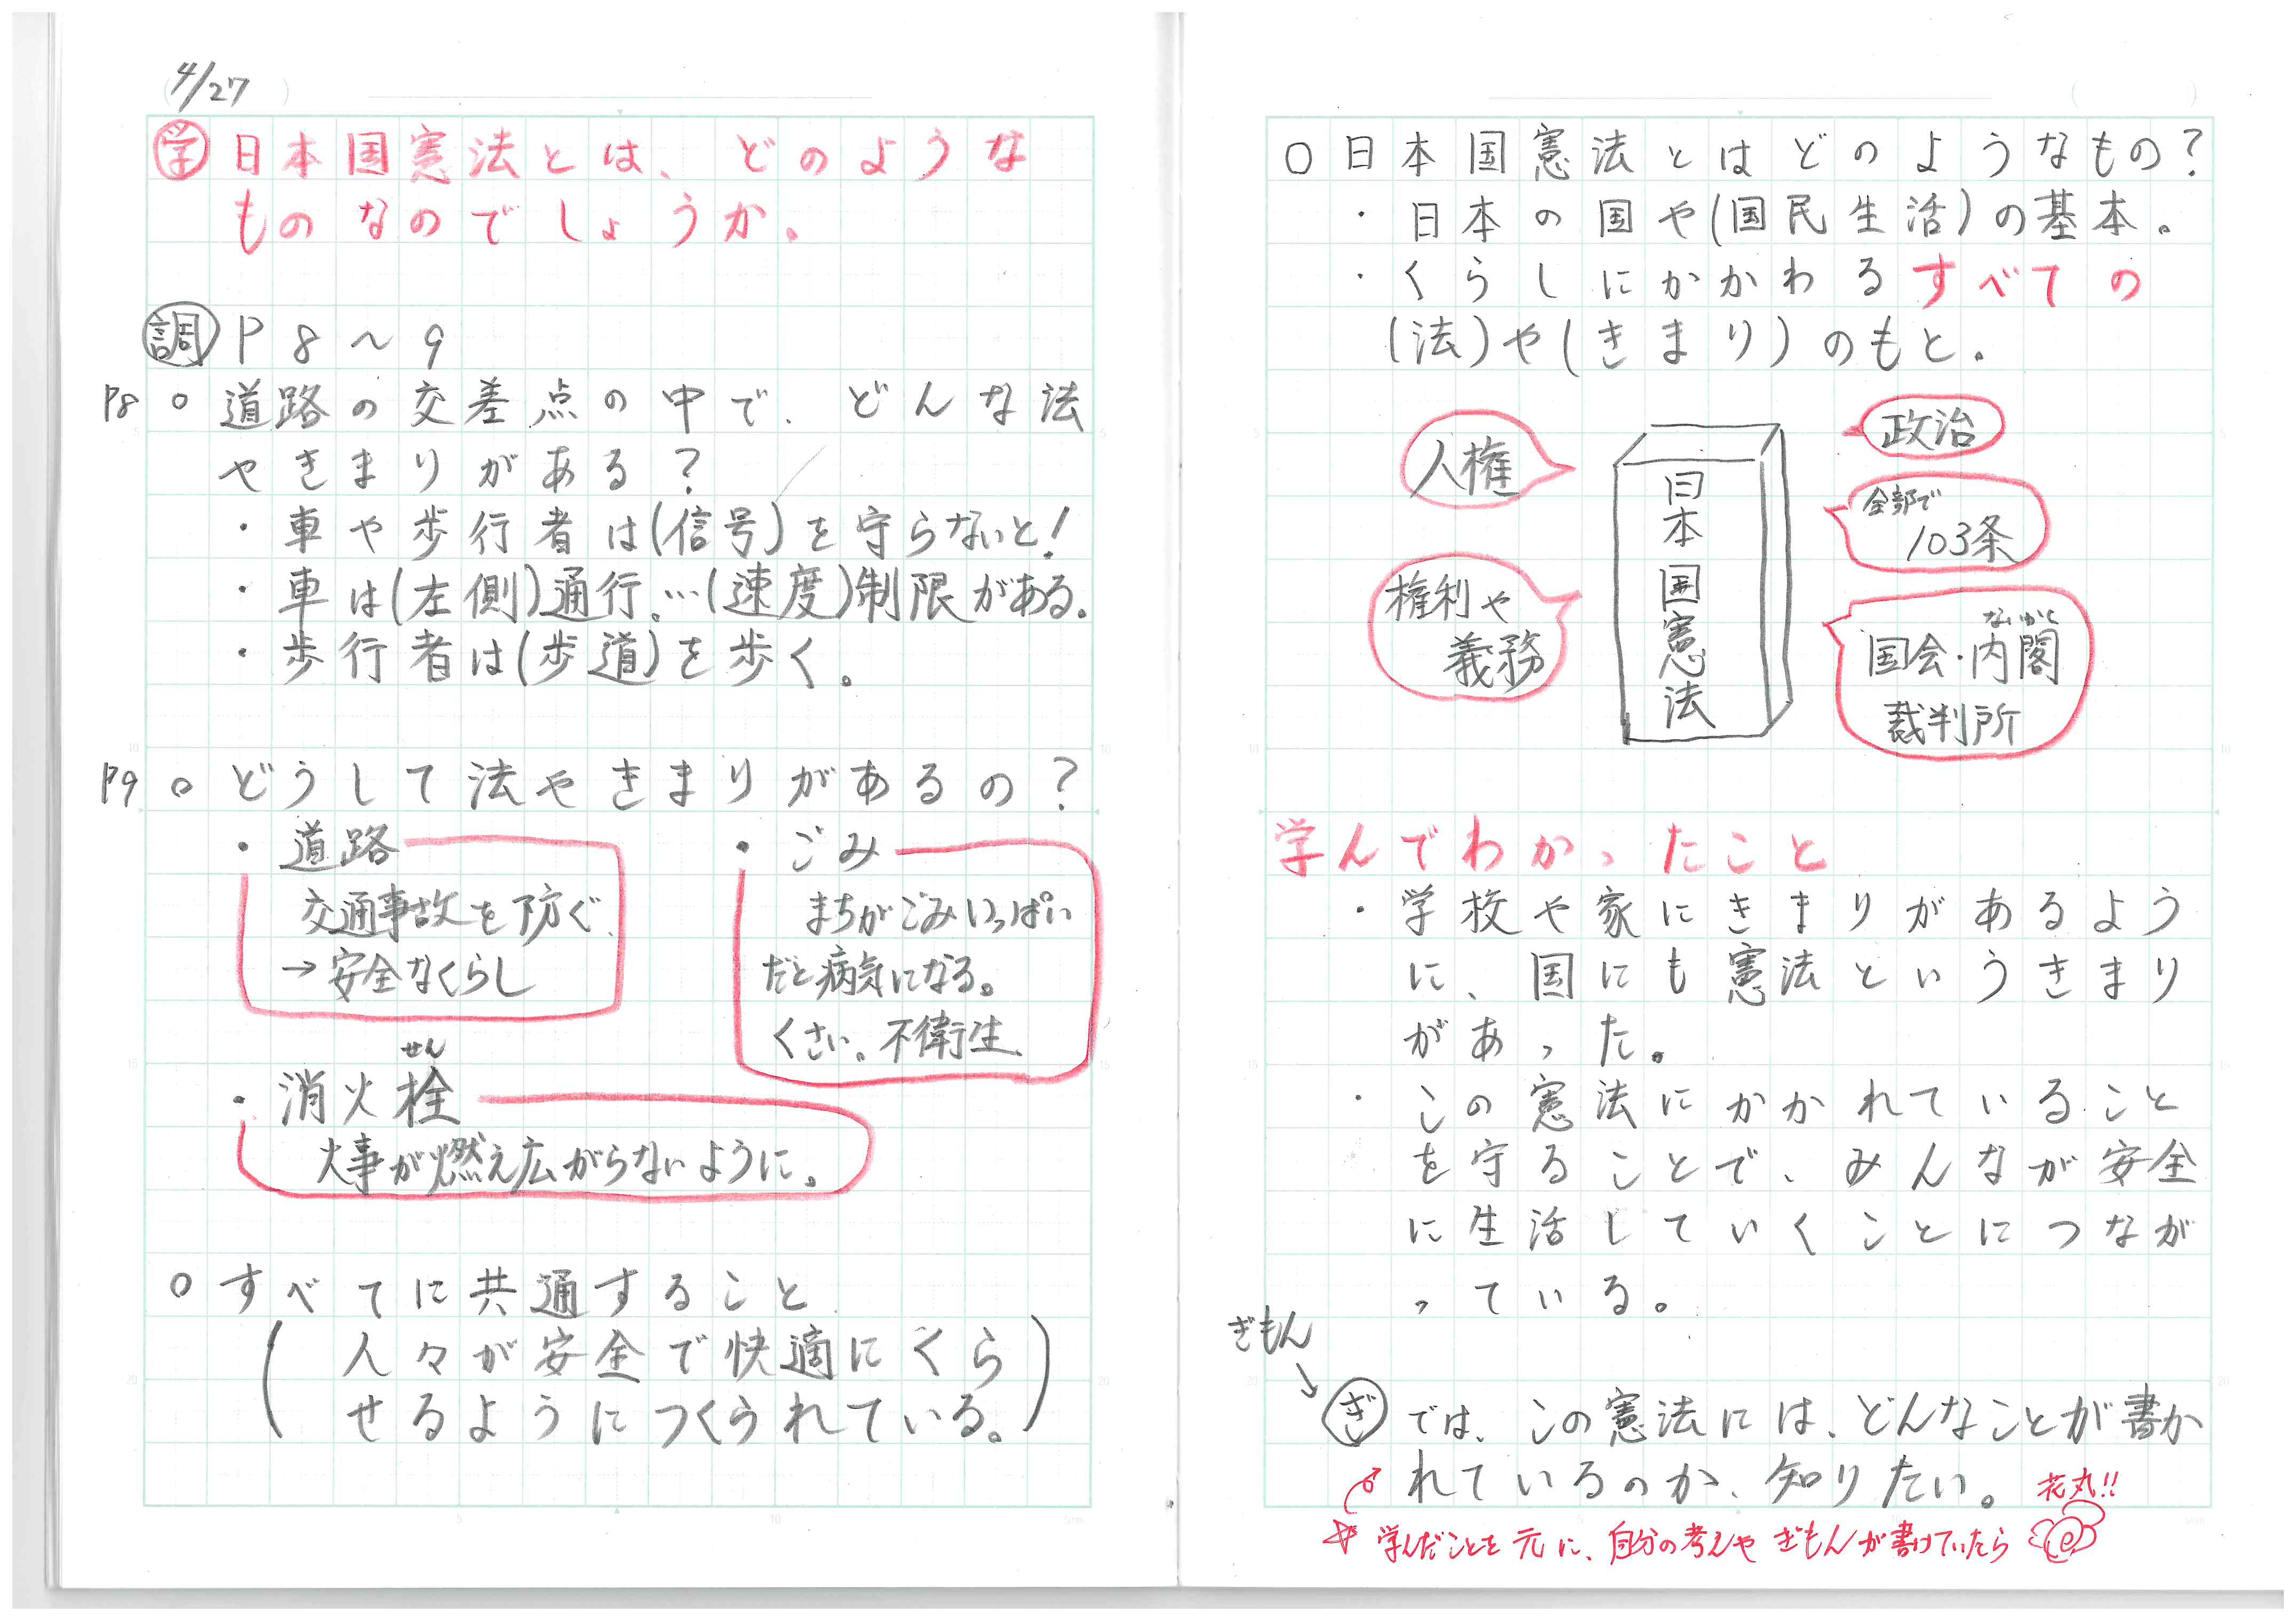 4/27
学 日本国憲法とは、どのような
ものなのでしょうか。
調 P8〜9
P8 ○ 道路の交差点の中で、どんな法
やきまりがある？
・車や歩行者は(信号)を守らないと！
・車は(左側)通行。…(速度)制限がある。
・歩行者は(歩道)を歩く。
P9 ○ どうして法やきまりがあるの？
・道路
交通事故を防ぐ、
→安全なくらし
・ごみ
まちがごみいっぱい
だと病気になる。
くさい。不衛生、
せん
・消火栓
火事が燃え広がらないように。
○ すべてに共通すること
(人々が安全で快適にくら
せるようにつくられている。)
○ 日本国憲法とはどのようなもの？
・日本の国や(国民生活)の基本。
・くらしにかかわるすべての
(法)や(きまり)のもと。
人権
権利や
義務
日本国憲法
政治
全部で
103条
ないかく
国会・内閣
裁判所
学んでわかったこと
・学校や家にきまりがあるよう
に、国にも憲法というきまり
があった。
・この憲法にかかれていること
を守ることで、みんなが安全
に生活していくことにつなが
っている。
ぎもん
ぎ では、この憲法には、どんなことが書か
れているのか、知りたい。
花丸!!
学んだことを元に、自分の考えやぎもんが書けていたら